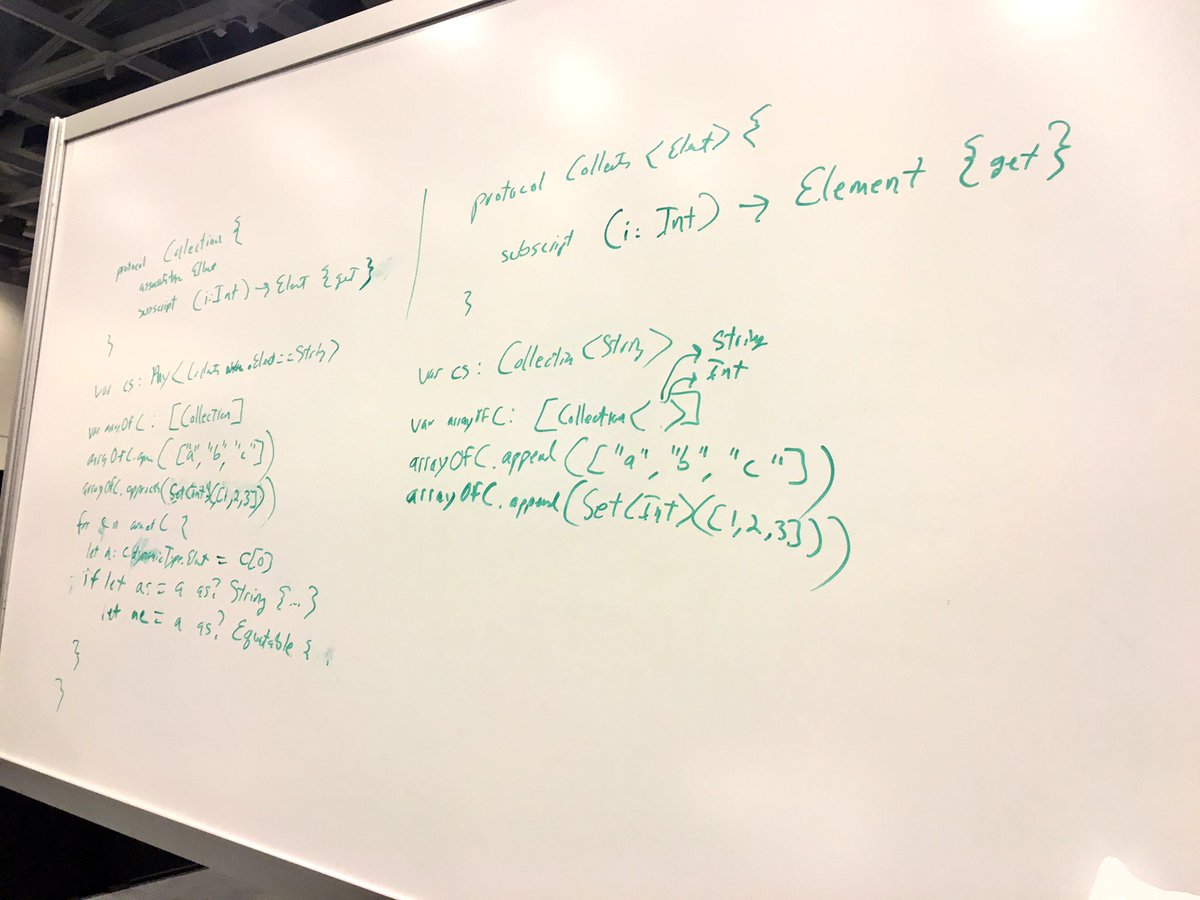 protocol Collection {
associatedtype Elmt
subscript (i: Int) → Elmt {get}
}
var cs: Any<Collection where .Elmt == String>
var arrayOfC: [Collection]
arrayOfC.append(["a", "b", "c"])
arrayOfC.append(Set<Int>([1,2,3]))
for c in arrayOfC {
let a: c.dynamicType.Elmt = c[0]
if let as = a as? String {...}
let ae = a as? Equatable {
}
}
protocol Collection <Elmt> {
subscript (i: Int) → Element {get}
}
var cs: Collection <String>
String
Int
var arrayOfC: [Collection< . >]
arrayOfC.append(["a", "b", "c"])
arrayOfC.append(Set<Int>([1,2,3]))